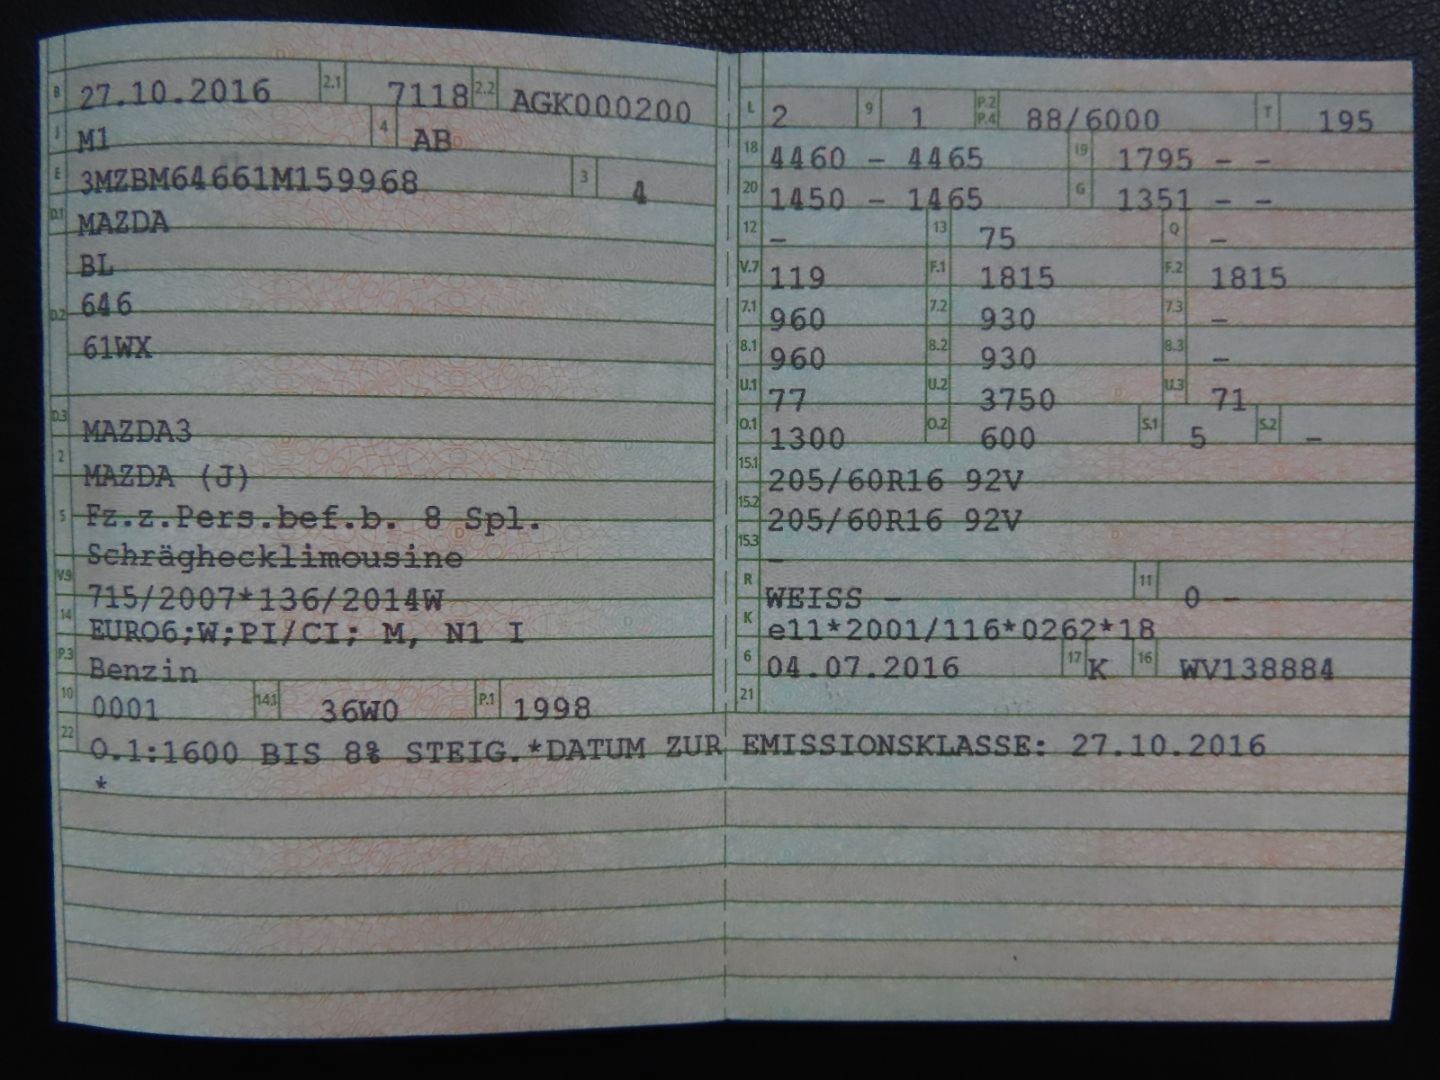 B 27.10.2016 2.1 7118 2.2 AGK000200
J M1 4 AB
E 3MZBM64661M159968 3 4
D.1 MAZDA
BL
D.2 646
61WX
D.3 MAZDA3
2 MAZDA (J)
5 Fz.z.Pers.bef.b. 8 Spl.
Schräghecklimousine
V.9 715/2007*136/2014W
14 EURO6;W;PI/CI; M, N1 I
P.3 Benzin
10 0001 14.1 36W0 P.1 1998
L 2 9 1 P.2 P.4 88/6000 T 195
18 4460 - 4465 19 1795 - -
20 1450 - 1465 G 1351 - -
12 - 13 75 Q -
V.7 119 F.1 1815 F.2 1815
7.1 960 7.2 930 7.3 -
8.1 960 8.2 930 8.3 -
U.1 77 U.2 3750 U.3 71
O.1 1300 O.2 600 S.1 5 S.2 -
15.1 205/60R16 92V
15.2 205/60R16 92V
15.3 -
R WEISS - 11 0 -
K e11*2001/116*0262*18
6 04.07.2016 17 K 16 WV138884
21
22 O.1:1600 BIS 8% STEIG.*DATUM ZUR EMISSIONSKLASSE: 27.10.2016
*